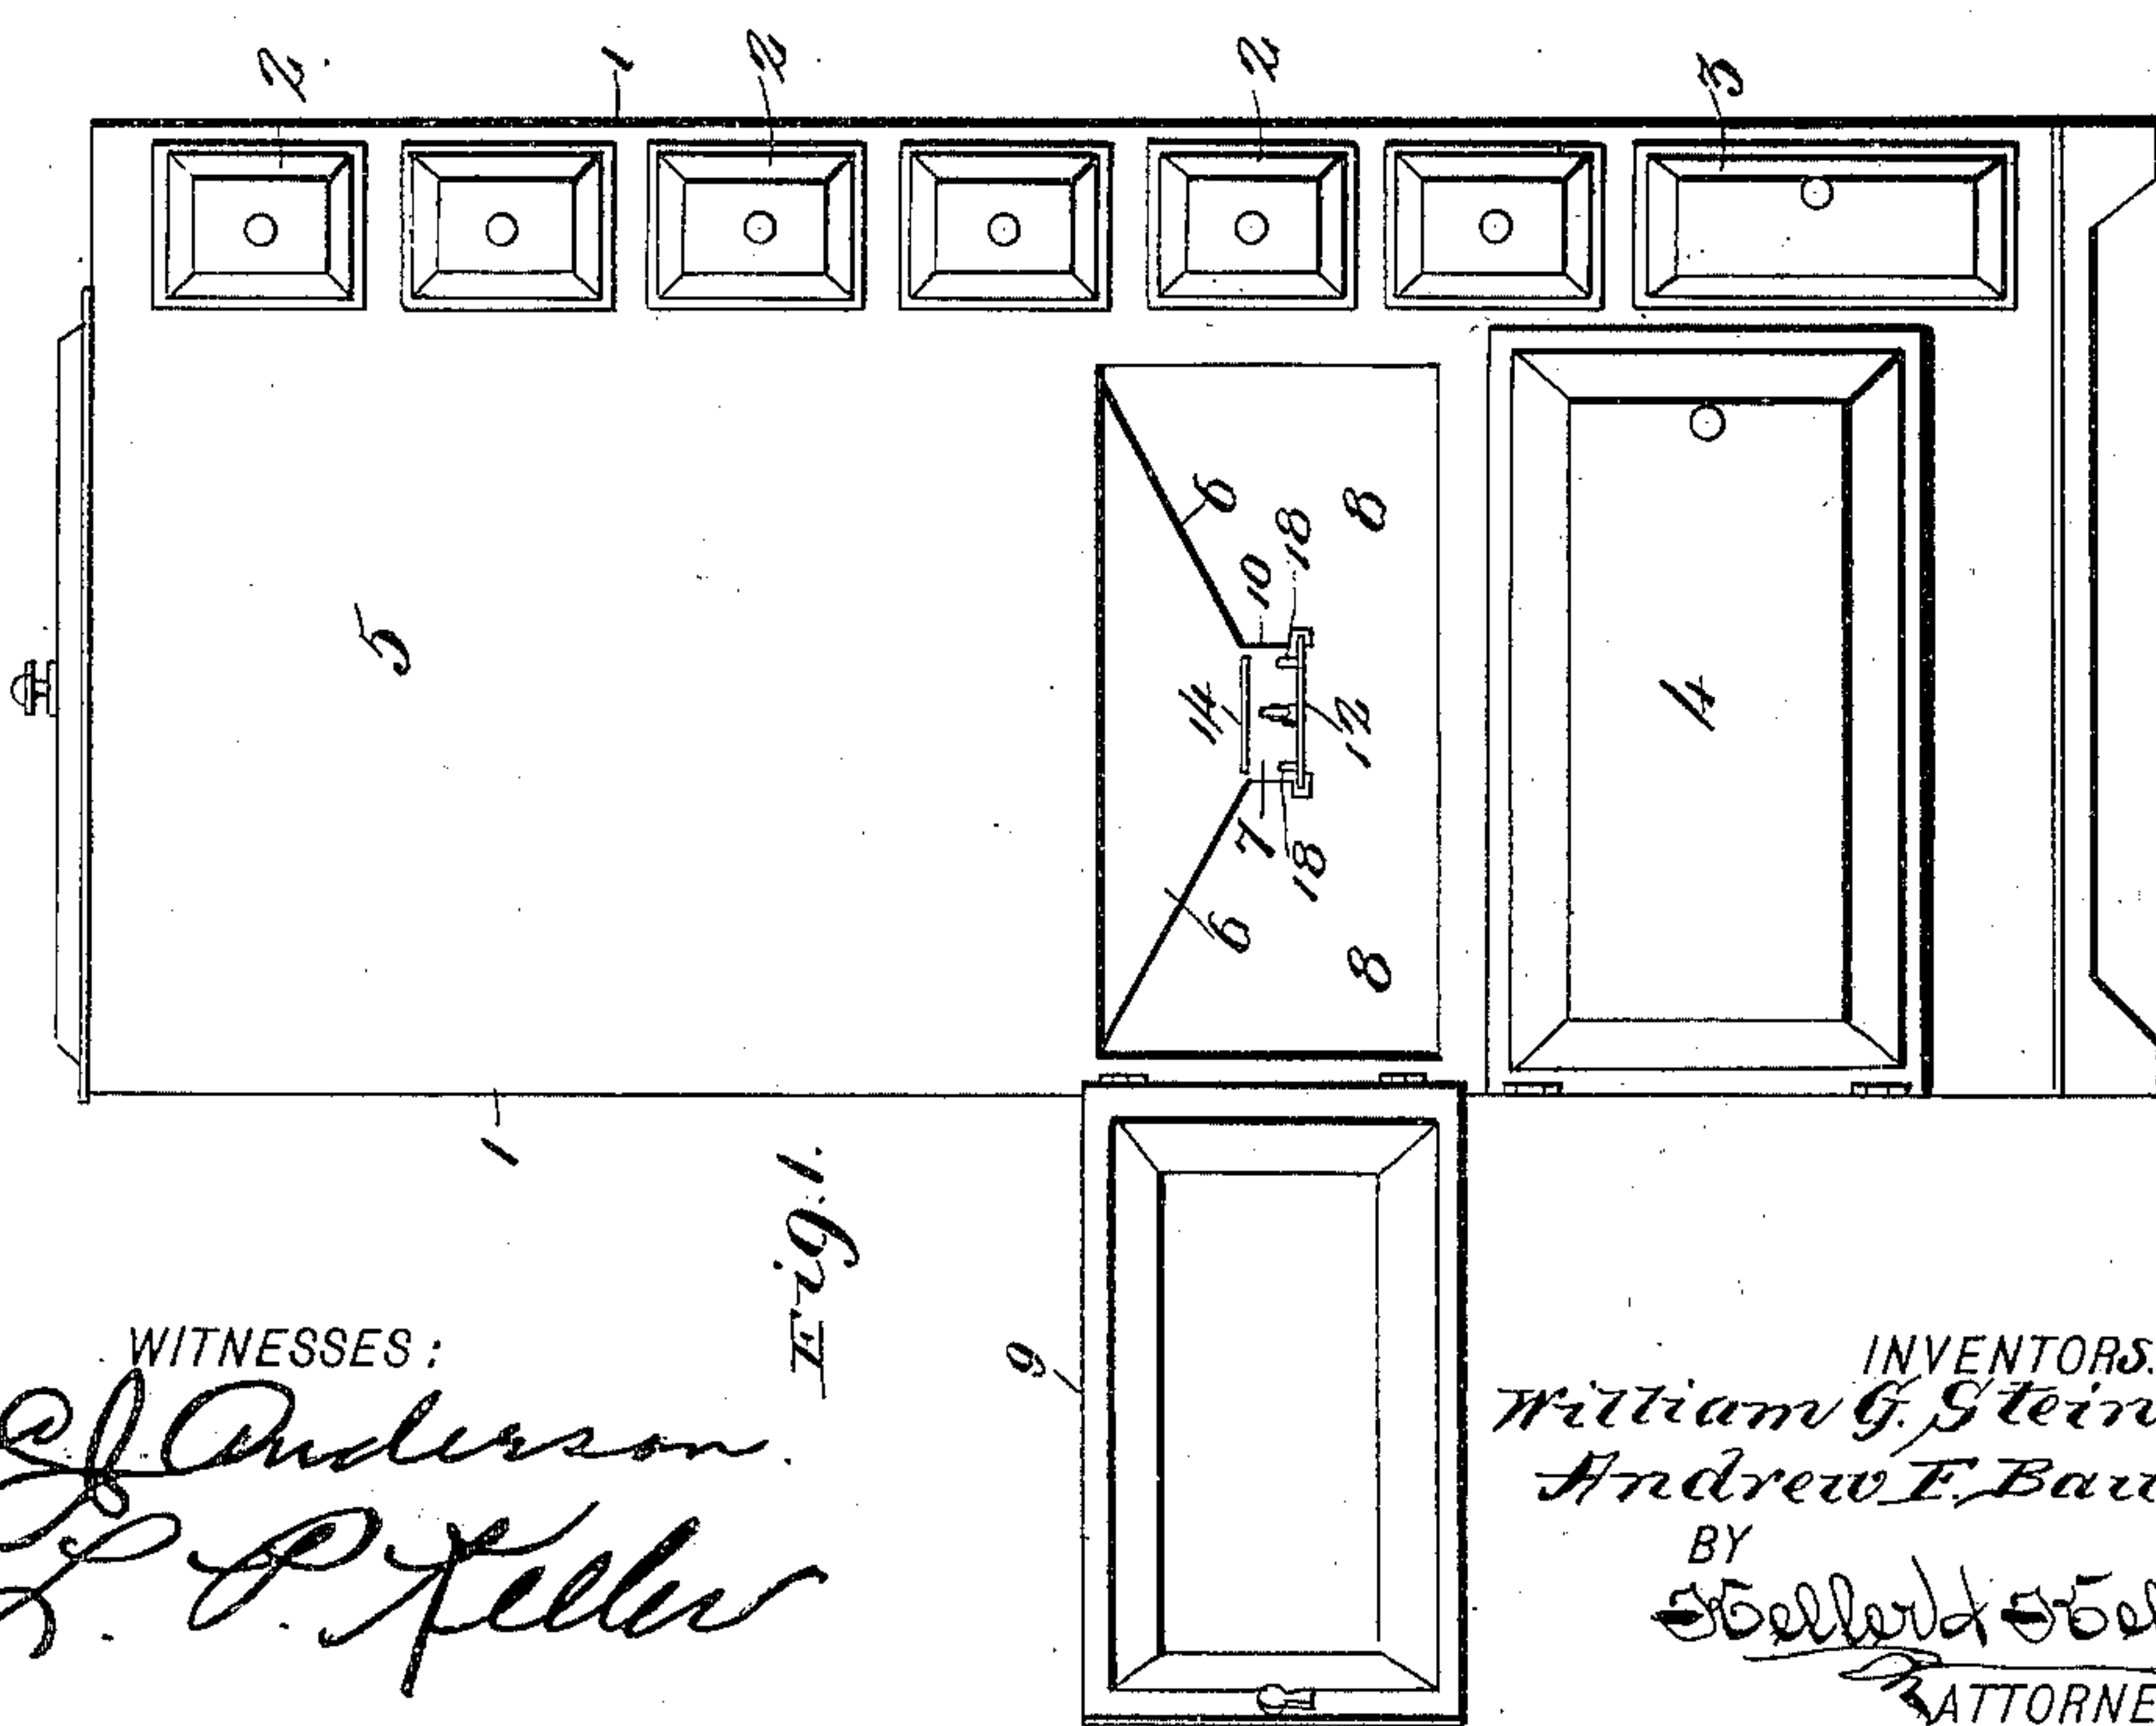 2.
1
2
2
3
5
6
8
10
18
14
12
4
7
18
6
8
1
Fig. 1.
9
WITNESSES:
Anderson.
L. P. Keller
INVENTORS.
William G. Stein
Andrew F. Bau
BY
ATTORNE